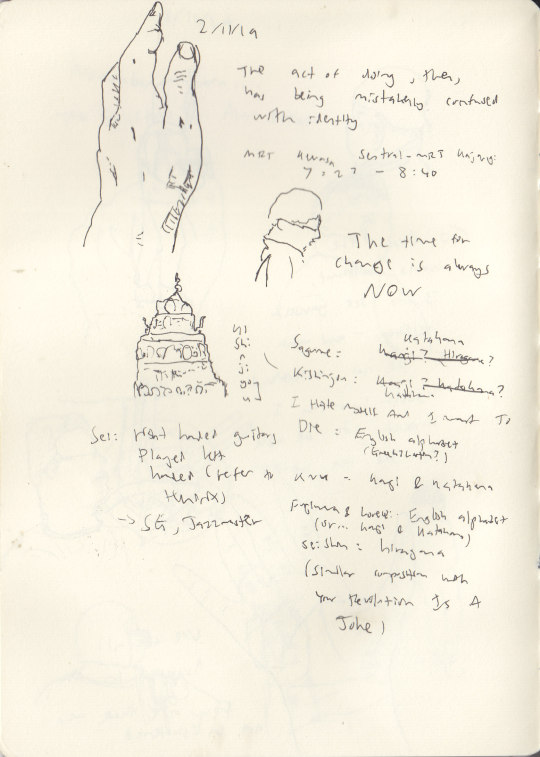 2/11/19
The act of doing, then,
has being mistakenly confused
with identity
MRT Muassa Sentral - MRT Kajang:
7:27 - 8:40
The time for
change is always
NOW
Katakana
Sagame: Kangi? Hiragana?
Kishingen: Kangi? Katakana?
I Hate myself And I want To
Die: English alphabet
Sei: Right handed guitars
Played left
handed (refer to
Hendrix)
-> SG, Jazzmaster
Kangi & Katakana
English alphabet
(or... Kangi & Katakana)
Seishun: hiragana
(similar composition with
Your Revolution Is A
Joke)